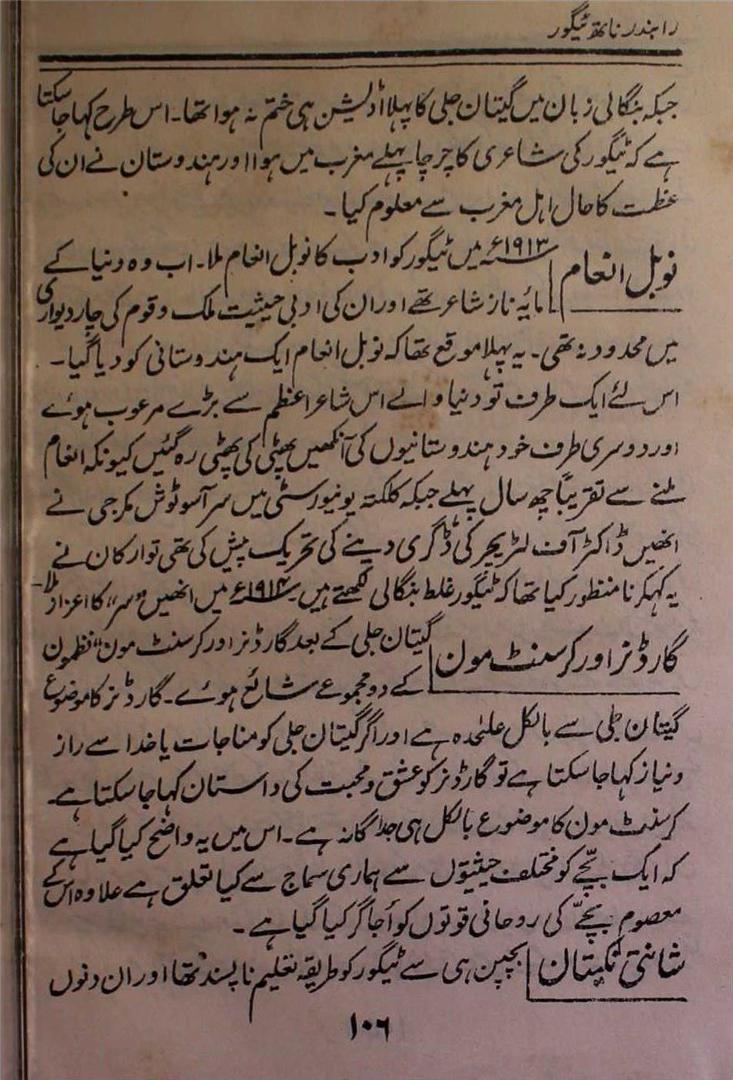 رابندر ناتھ ٹیگور
جبکہ بنگالی زبان میں گیتان جلی کا پہلا اڈیشن ہی ختم نہ ہوا تھا۔ اس طرح کہا جا سکتا
ہے کہ ٹیگور کی شاعری کا چرچا پہلے مغرب میں ہوا اور ہندوستان نے ان کی
عظمت کا حال اہل مغرب سے معلوم کیا۔
نوبل انعام
۱۹۱۳ء میں ٹیگور کو ادب کا نوبل انعام ملا۔ اب وہ دنیا کے
مایۂ ناز شاعر تھے اور ان کی ادبی حیثیت ملک و قوم کی چار دیواری
میں محدود نہ تھی۔ یہ پہلا موقع تھا کہ نوبل انعام ایک ہندوستانی کو دیا گیا۔
اس لئے ایک طرف تو دنیا والے اس شاعر اعظم سے بڑے مرعوب ہوئے
اور دوسری طرف خود ہندوستانیوں کی آنکھیں پھٹی کی پھٹی رہ گئیں کیونکہ انعام
ملنے سے تقریباً چھ سال پہلے جبکہ کلکتہ یونیورسٹی میں سر آسوتوش مکرجی نے
انھیں ڈاکٹر آف لٹریچر کی ڈگری دینے کی تحریک پیش کی تھی تو ارکان نے
یہ کہکر نامنظور کیا تھا کہ ٹیگور غلط بنگالی لکھتے ہیں۔ ۱۹۱۴ء میں انھیں "سر" کا اعزاز ملا۔
گارڈنر اور کرسنٹ مون
گیتان جلی کے بعد گارڈنر اور کرسنٹ مون" نظموں
کے دو مجموعے شائع ہوئے۔ گارڈنر کا موضوع
گیتان جلی سے بالکل علٰحدہ ہے اور اگر گیتان جلی کو مناجات یا خدا سے راز
ونیاز کہا جا سکتا ہے تو گارڈنر کو عشق و محبت کی داستان کہا جا سکتا ہے۔
کرسنٹ مون کا موضوع بالکل ہی جداگانہ ہے۔ اس میں یہ واضح کیا گیا ہے
کہ ایک بچّے کو مختلف حیثیتوں سے ہماری سماج سے کیا تعلق ہے علاوہ اس کے
معصوم بچےّ کی روحانی قوتوں کو اُجاگر کیا گیا ہے۔
شانتی نکیتان
بچپن ہی سے ٹیگور کو طریقہ تعلیم ناپسند تھا اور ان دنوں
۱۰۶